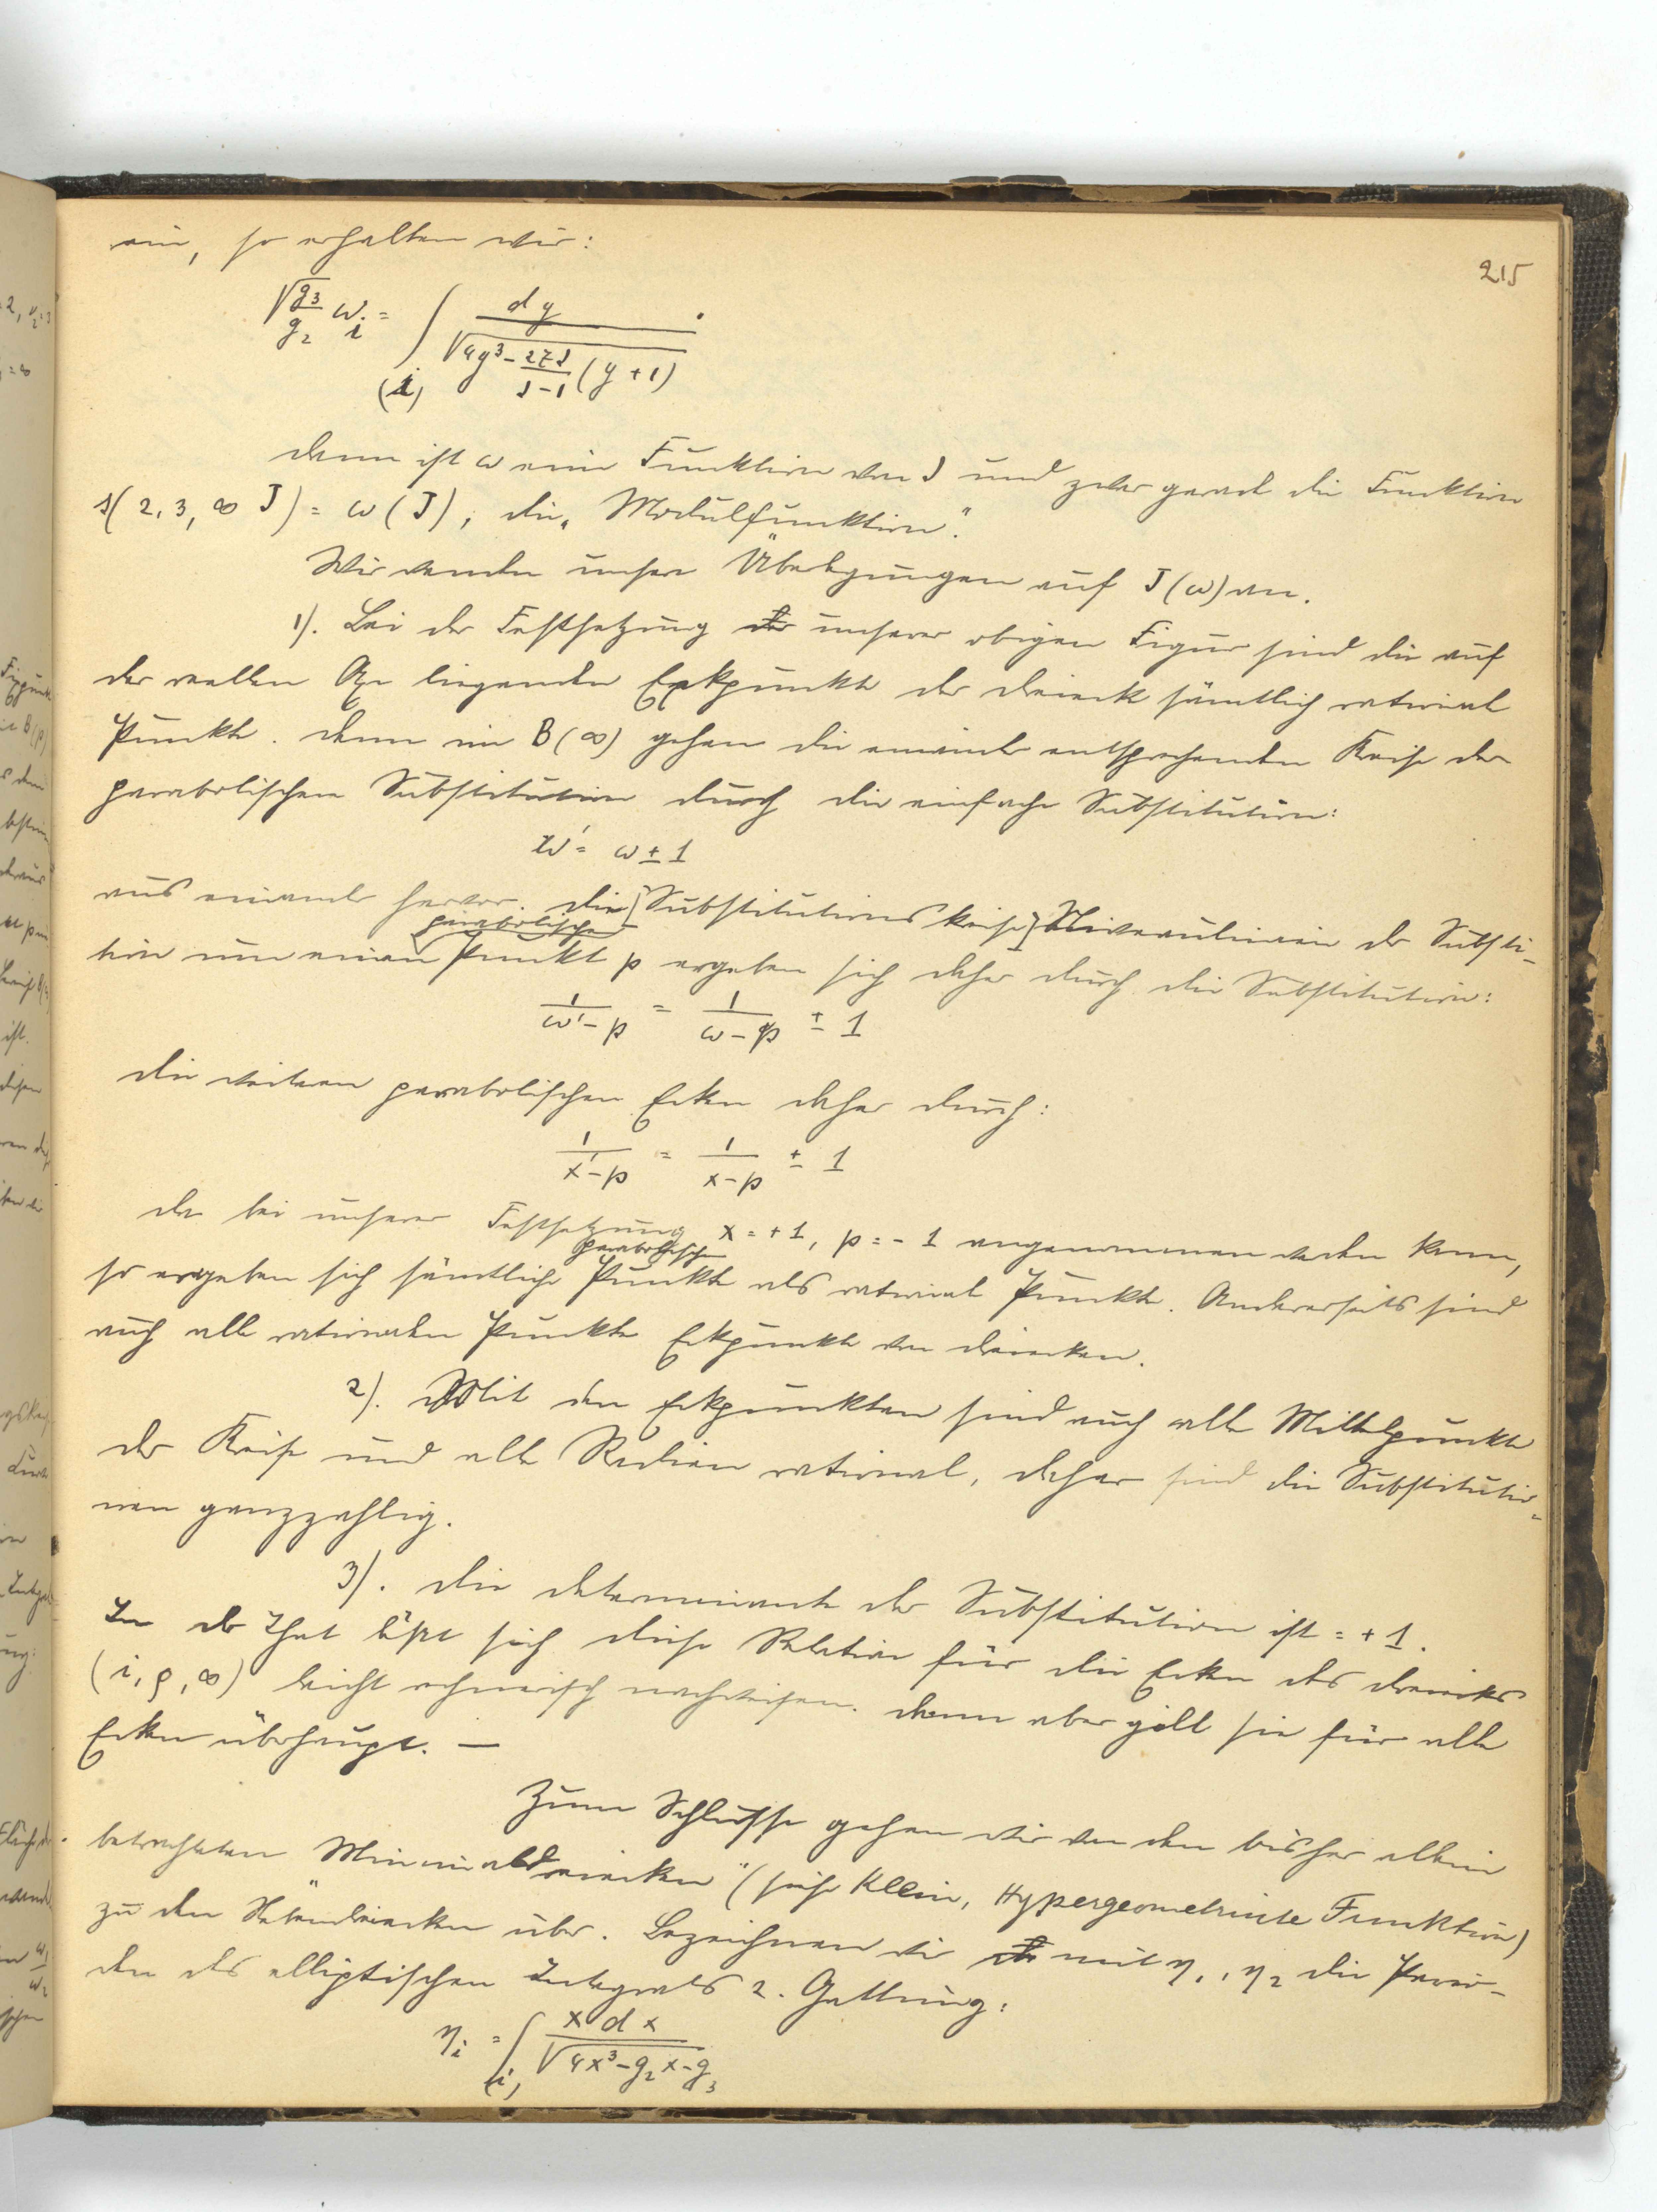 215
ein, so erhalten wir:
√(g₃/g₂) ωᵢ = ∫₍ᵢ₎ dy / √(4y³ - 27J/(J-1) (y+1)) .
dann ist ω eine Funktion von J und zwar gerade die Funktion
s(2, 3, ∞ J) = ω(J), die „Modulfunktion".
Wir wenden unsere Überlegungen auf J(ω) an.
1). Bei der Festsetzung unserer obigen Figur sind die auf
der reellen Axe liegenden Eckpunkte der Dreiecke sämtlich rationale
Punkte. Denn im B(∞) gehen die einander entsprechenden Kreise der
parabolischen Substitution durch die einfache Substitution:
ω' = ω ± 1
aus einander hervor. Die [Substitutionskreise] Niveaulinien der Substi-
tion um einen parabolischen Punkt p ergeben sich daher durch die Substitution:
1/(ω'-p) = 1/(ω-p) ± 1
die weiteren parabolischen Ecken daher durch:
1/(x'-p) = 1/(x-p) ± 1
Da bei unserer Festsetzung x = +1, p = -1 angenommen werden kann,
so ergeben sich sämtliche parabolische Punkte als rationale Punkte. Andererseits sind
auch alle rationalen Punkte Eckpunkte von Dreiecken.
2). Mit den Eckpunkten sind auch alle Mittelpunkte
der Kreise und alle Radien rational, daher sind die Substitutio-
nen ganzzahlig.
3). Die Determinante der Substitution ist = +1.
In der That läßt sich diese Relation für die Ecken des Dreiecks
(i, ρ, ∞) leicht rechnerisch nachweisen. Dann aber gilt sie für alle
Ecken überhaupt. —
Zum Schlusse gehen wir von den bisher allein
betrachteten Minimaldreiecken" (siehe Klein, Hypergeometrische Funktion)
zu den über. Bezeichnen wir mit η₁, η₂ die Perio-
den des elliptischen Integrals 2. Gattung:
ηᵢ = ∫₍ᵢ₎ x dx / √(4x³ - g₂x - g₃)